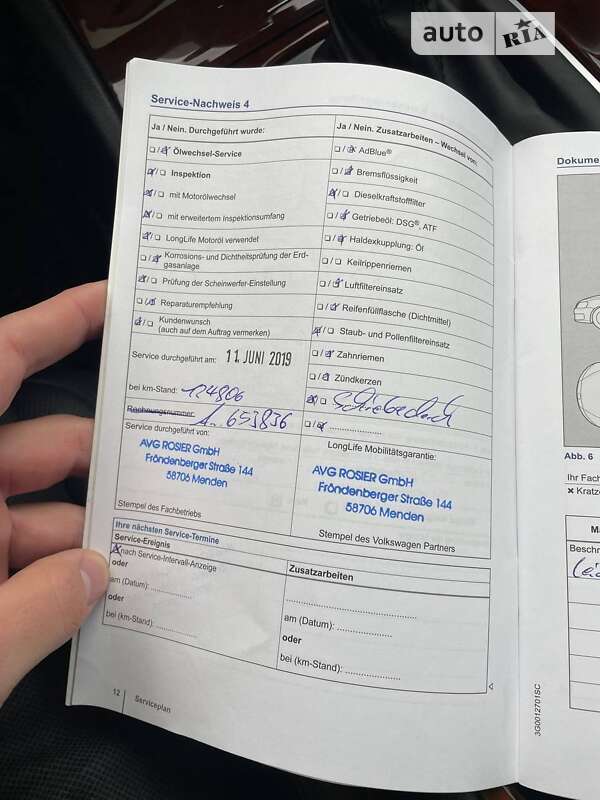 auto RIA
Service-Nachweis 4
Ja / Nein. Durchgeführt wurde:
□/□ Ölwechsel-Service
□/□ Inspektion
□/□ mit Motorölwechsel
□/□ mit erweitertem Inspektionsumfang
□/□ LongLife Motoröl verwendet
□/□ Korrosions- und Dichtheitsprüfung der Erd-
gasanlage
□/□ Prüfung der Scheinwerfer-Einstellung
□/□ Reparaturempfehlung
□/□ Kundenwunsch
(auch auf dem Auftrag vermerken)
Service durchgeführt am: 11. JUNI 2019
bei km-Stand: 124806
Rechnungsnummer: A. 653836
Service durchgeführt von:
AVG ROSIER GmbH
Fröndenberger Straße 144
58706 Menden
Stempel des Fachbetriebs
Ja / Nein. Zusatzarbeiten – Wechsel von:
□/□ AdBlue®
□/□ Bremsflüssigkeit
□/□ Dieselkraftstofffilter
□/□ Getriebeöl: DSG®, ATF
□/□ Haldexkupplung: Öl
□/□ Keilrippenriemen
□/□ Luftfiltereinsatz
□/□ Reifenfüllflasche (Dichtmittel)
□/□ Staub- und Pollenfiltereinsatz
□/□ Zahnriemen
□/□ Zündkerzen
□/□ Schiebedach
□/□ ....................
LongLife Mobilitätsgarantie:
AVG ROSIER GmbH
Fröndenberger Straße 144
58706 Menden
Stempel des Volkswagen Partners
Ihre nächsten Service-Termine
Service-Ereignis
□ nach Service-Intervall-Anzeige
oder
am (Datum): ................
oder
bei (km-Stand): ................
Zusatzarbeiten
am (Datum): ....................
oder
bei (km-Stand): ....................
12
Serviceplan
Dokume
Abb. 6
Ihr Fach
× Kratze
Ma
Beschr
3G0012701SC